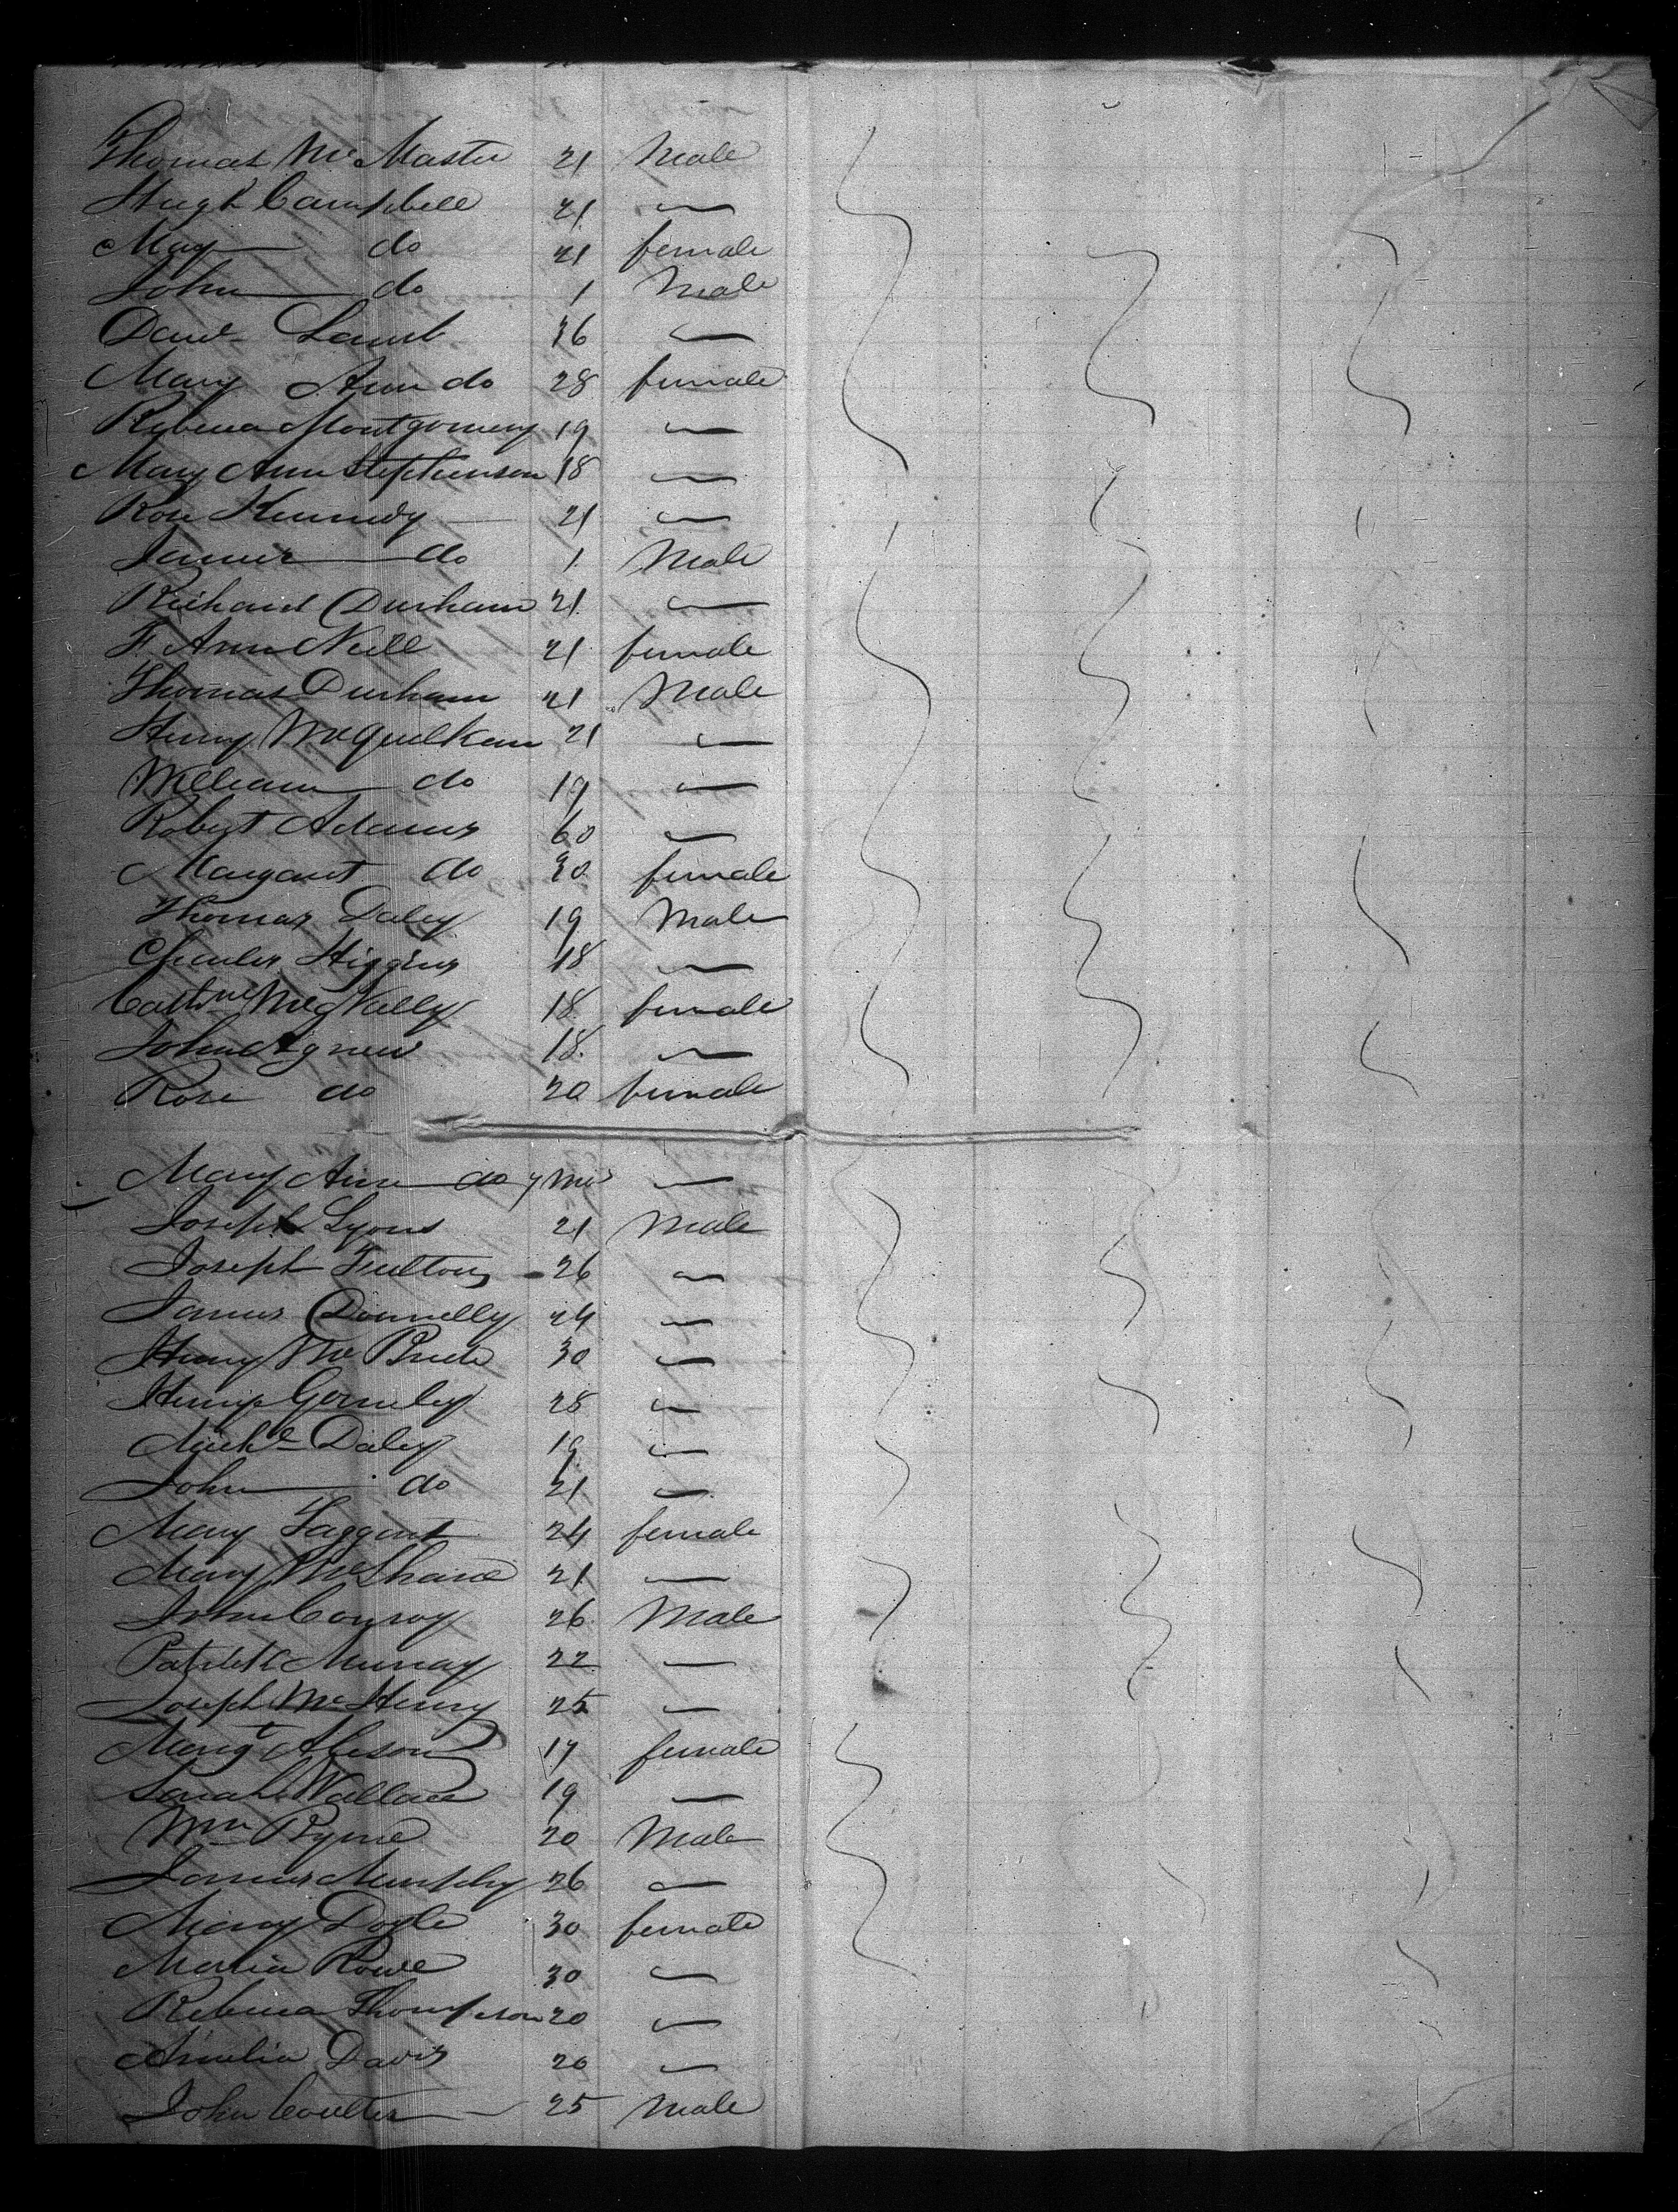 Thomas McMaster 21 Male
Hugh Campbell 21 —
May do 21 female
John do 1 Male
Danl Lamb 36 —
Mary Ann do 28 female
Rebecca Montgomery 19 —
Mary Ann Stephenson 18 —
Rose Kennedy 21 —
James do 1 Male
Richard Durham 21 —
Ann Neill 21 female
Thomas Durham 21 Male
Henry McQuilkan 21 —
William do 19 —
Robert Adams 60 —
Margaret do 30 female
Thomas Daley 19 Male
Charles Higgins 18 —
Cathne McNally 18 female
John Agnew 18 —
Rose do 20 female
Mary Ann do 7 Mos —
Joseph Lyons 21 Male
Joseph Fulton 26 —
James Donnelly 24 —
Henry McBride 30 —
Henry Gormley 28 —
Michl Daley 19 —
John do 21 —
Mary Taggart 24 female
Mary McShane 21 —
John Conroy 26 Male
Patrick Murray 22 —
Joseph McHenry 25 —
Margt Alison 17 female
Sarah Wallace 19 —
Wm Byrne 20 Male
James Murphy 26 —
Mary Doyle 30 female
Maria Rowe 30 —
Rebecca Thompson 20 —
Amelia Davis 20 —
John Coulter 25 Male